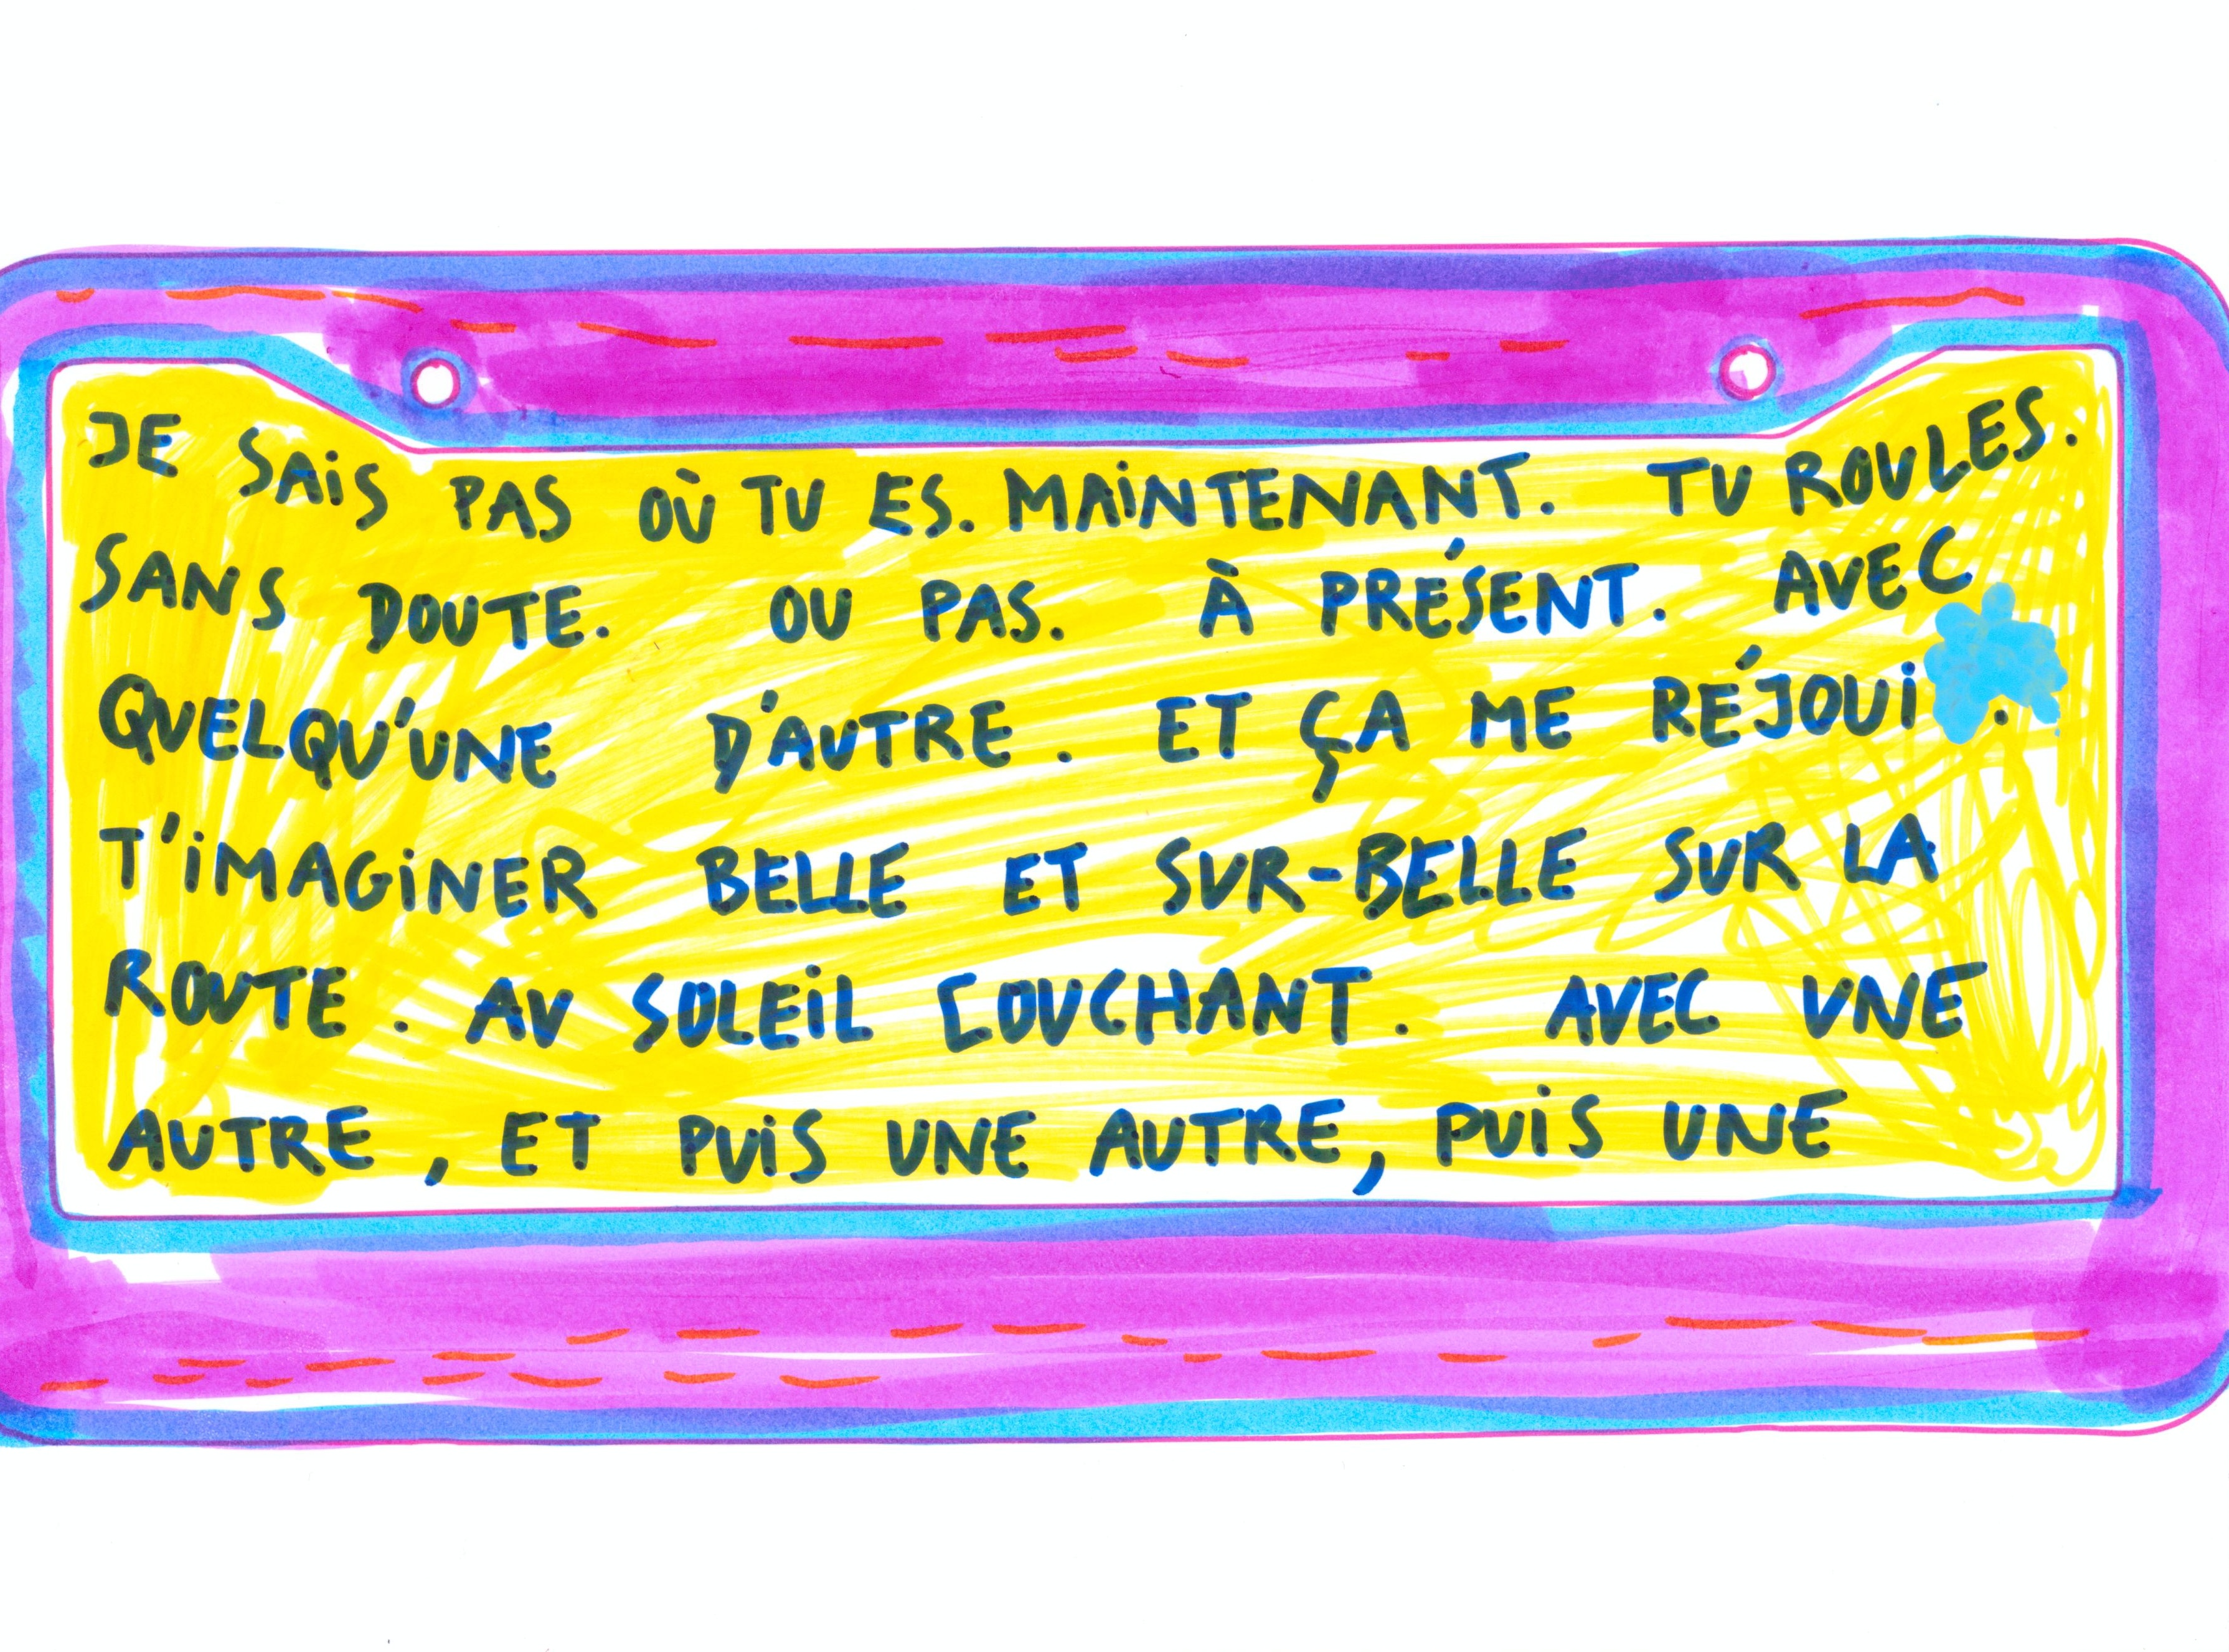 JE SAiS PAS OÙ TU ES. MAiNTENANT. TU ROULES.
SANS DOUTE. OU PAS. À PRÉSENT. AVEC
QUELQU'UNE D'AUTRE. ET ÇA ME RÉJOUi .
T'iMAGiNER BELLE ET SUR-BELLE SUR LA
ROUTE. AU SOLEiL COUCHANT. AVEC UNE
AUTRE, ET PUiS UNE AUTRE, PUiS UNE